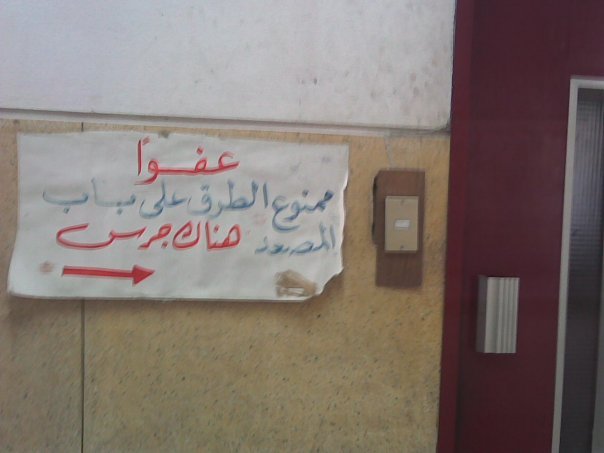 عفوًا
ممنوع الطرق على باب
المصعد هناك جرس